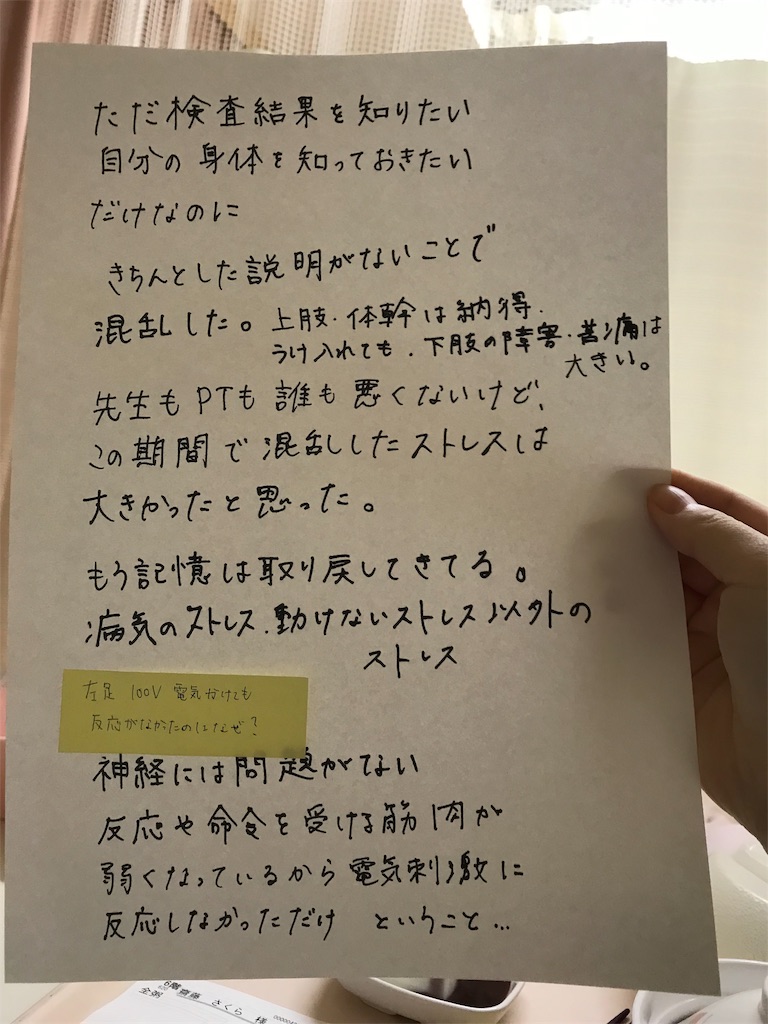 ただ検査結果を知りたい
自分の身体を知っておきたい
だけなのに
きちんとした説明がないことで
混乱した。上肢・体幹は納得.
うけ入れても、下肢の障害・苦痛は
大きい。
先生もPTも誰も悪くないけど、
この期間で混乱したストレスは
大きかったと思った。
もう記憶は取り戻してきてる。
病気のストレス、動けないストレス以外の
ストレス
左足 100V 電気かけても
反応がなかたのはなぜ?
神経には問題がない
反応や命令を受ける筋肉が
弱くなっているから電気刺激に
反応しなかっただけ ということ…
6階 齋藤 さくら 様
全粥